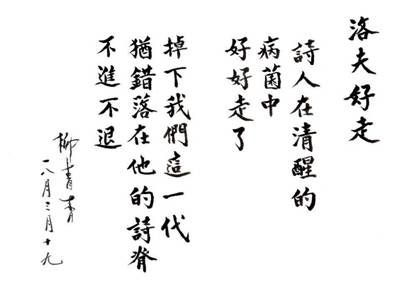 洛夫好走
詩人在清醒的
病菌中
好好走了
掉下我們這一代
猶錯落在他的詩脊
不進不退
柳青青
一八 三月十九